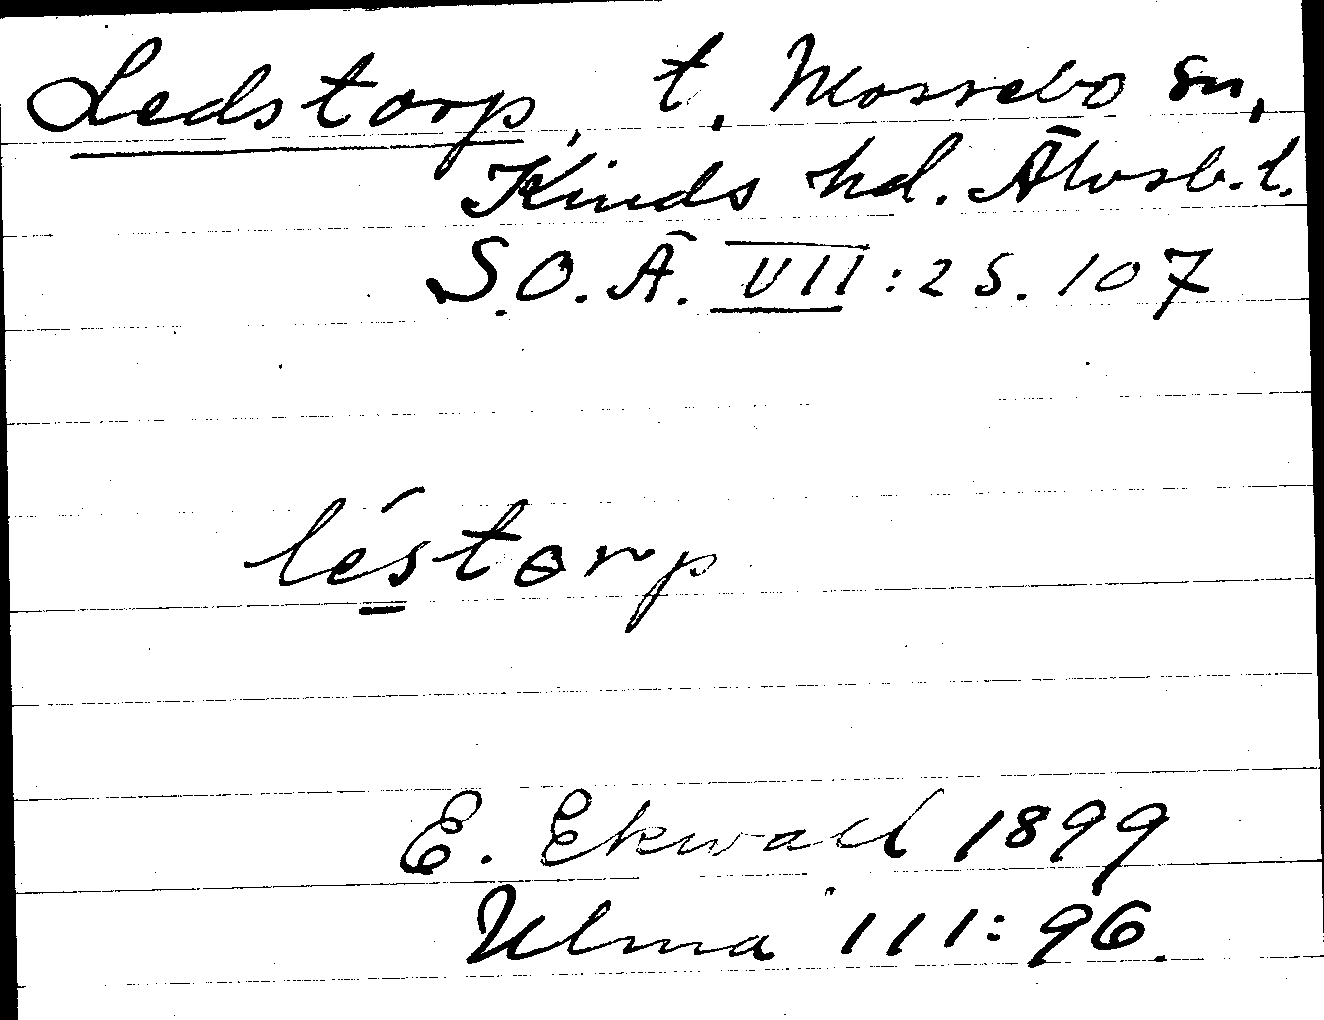 Ledstorp, t, Mossebo sn,
Kinds hd. Älvsb. l.
S.O.Ä. VII:2 S. 107
léstɵrp
E. Ekwall 1899
Ulma 111:96.